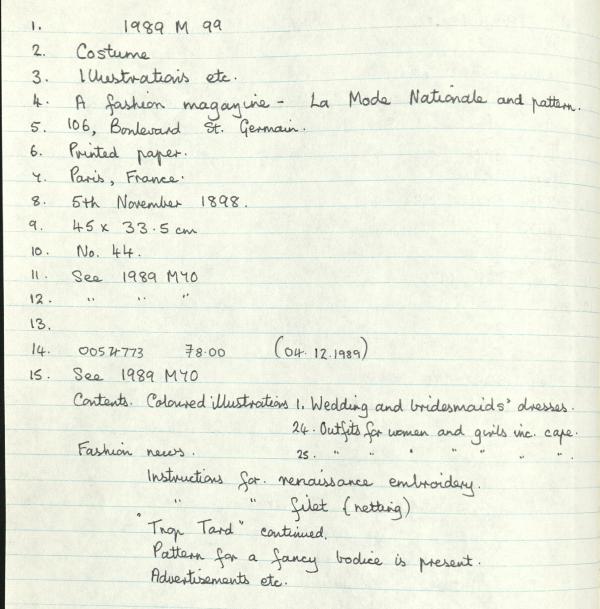 1. 1989 M 99
2. Costume
3. Illustrations etc.
4. A fashion magazine - La Mode Nationale and pattern.
5. 106, Boulevard St. Germain.
6. Printed paper.
7. Paris, France.
8. 5th November 1898.
9. 45 x 33.5 cm
10. No. 44.
11. See 1989 M70
12. " " "
13.
14. 78.00 (04.12.1989)
15. See 1989 M70
Contents. Coloured illustrations 1. Wedding and bridesmaids' dresses.
24. Outfits for women and girls inc. cape.
Fashion news. 25. " " " " " " "
Instructions for renaissance embroidery.
" " filet (netting)
"Trop Tard" continued.
Pattern for a fancy bodice is present.
Advertisements etc.